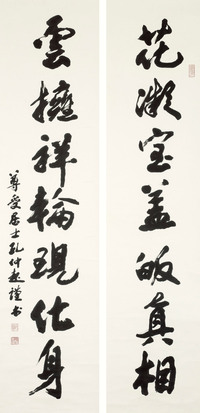 花凝宝盖皈真相
雲擁祥輪現化身
尊受居士孔仲起谨书